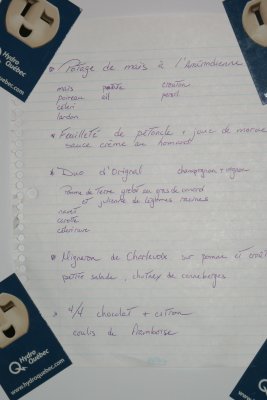 Hydro
Québec
www.hydroquebec.com
Potage de maïs à l'Amérindienne
maïs patate crouton
poireau ail persil
céleri
lardon
Feuilleté de pétoncle + joue de morue
sauce crème au homard
Duo d'Orignal champignon + oignon
Pomme de terre grelot au gras de canard
et julienne de légumes racines
navet
carotte
céleri rave
Migneron de Charlevoix sur pomme et croûton
petite salade, chutney de canneberges
4/4 chocolat + citron
coulis de framboise
Hydro
Québec
www.hydroquebec.com
Hydro
Québec
www.hydroq